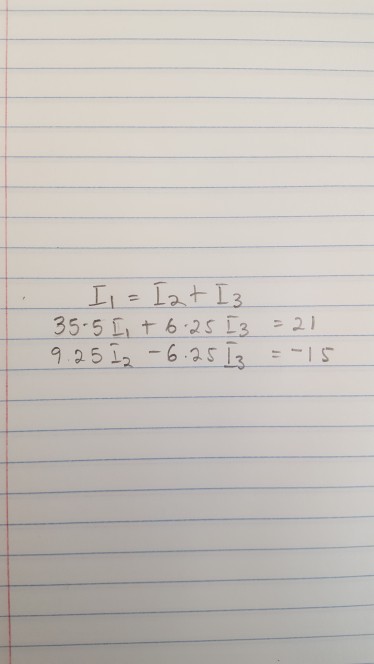 I₁ = I₂ + I₃
35.5 I₁ + 6.25 I₃ = 21
9.25 I₂ - 6.25 I₃ = -15